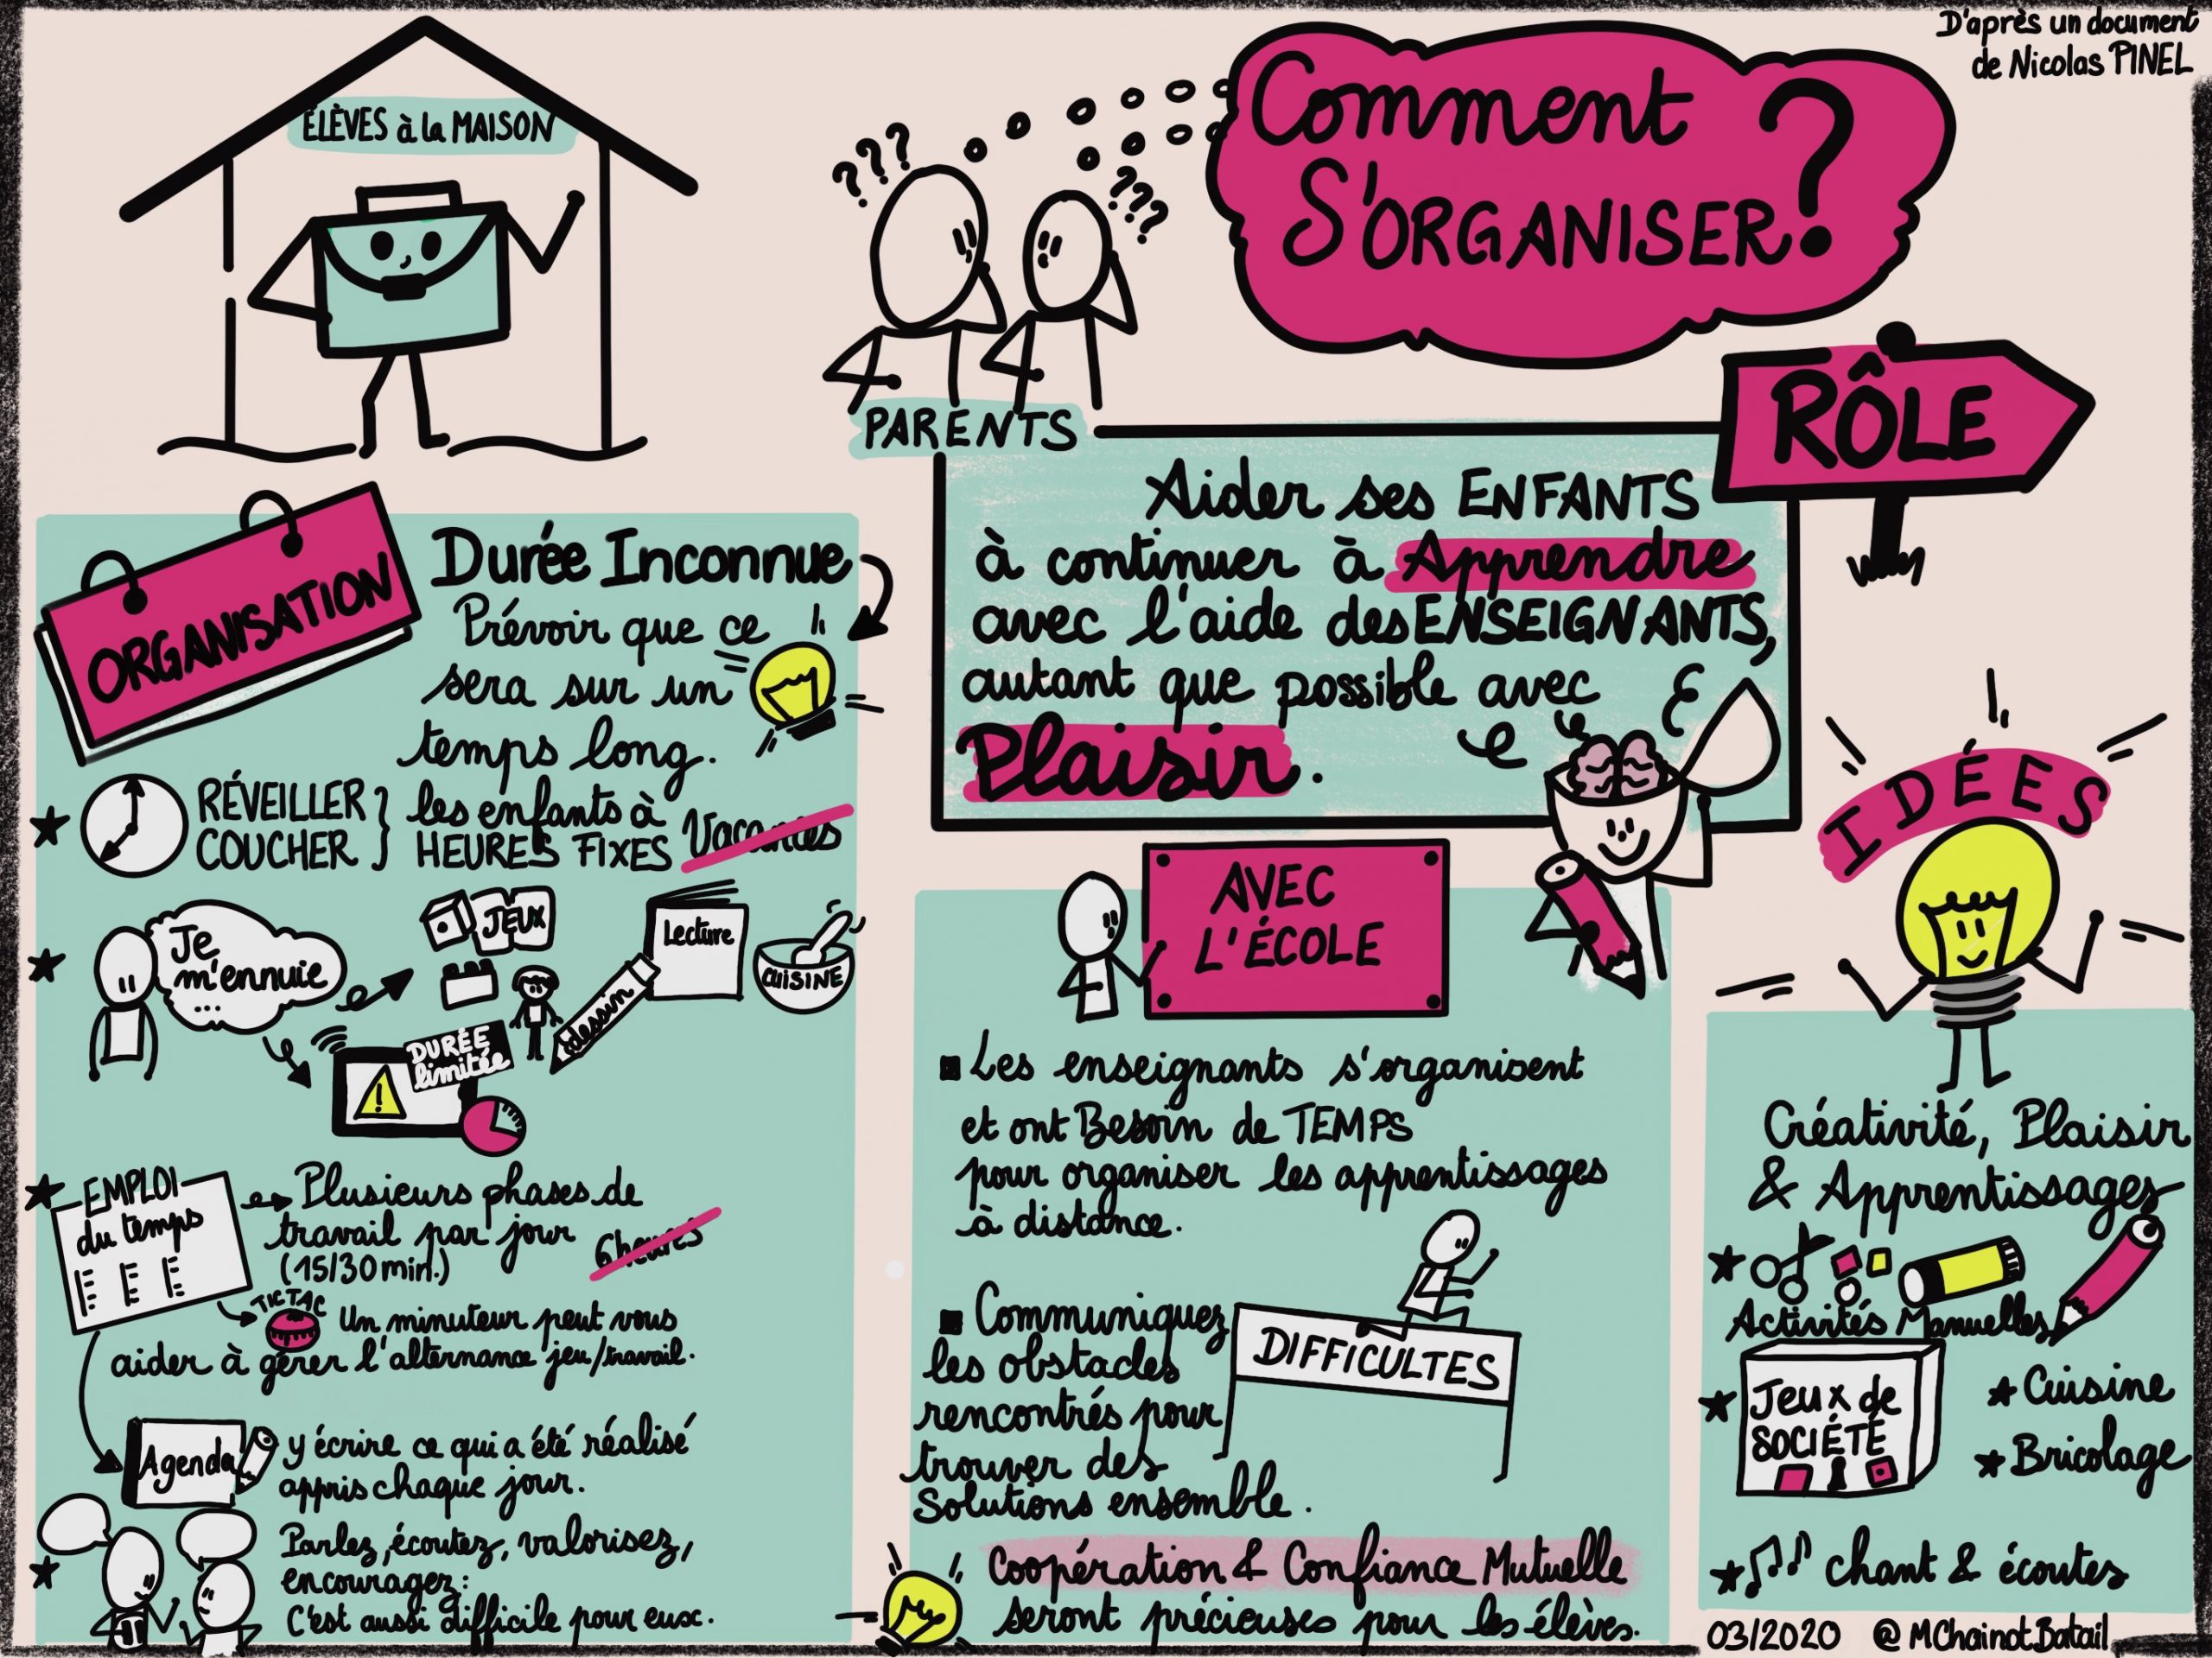 D'après un document
de Nicolas PINEL
ÉLÈVES à la MAISON
Comment
S'ORGANISER?
???
???
PARENTS
RÔLE
Aider ses ENFANTS
à continuer à Apprendre
avec l'aide des ENSEIGNANTS,
autant que possible avec
Plaisir.
ORGANISATION
Durée Inconnue
Prévoir que ce
sera sur un
temps long.
RÉVEILLER
COUCHER
les enfants à
HEURES FIXES
Vacances
Je
m'ennuie
...
JEUX
Lecture
CUISINE
dessin
DURÉE
limitée
!
EMPLOI
du temps
Plusieurs phases de
travail par jour
(15/30 min.)
6 heures
TIC TAC
Un minuteur peut vous
aider à gérer l'alternance jeu/travail.
Agenda
y écrire ce qui a été réalisé
appris chaque jour.
Parlez, écoutez, valorisez,
encouragez:
C'est aussi difficile pour eux.
AVEC
L'ÉCOLE
Les enseignants s'organisent
et ont Besoin de TEMPS
pour organiser les apprentissages
à distance.
Communiquez
les obstacles
rencontrés pour
trouver des
Solutions ensemble.
DIFFICULTES
Coopération & Confiance Mutuelle
seront précieuses pour les élèves.
IDÉES
Créativité, Plaisir
& Apprentissages
Activités Manuelles
Jeux de
SOCIÉTÉ
Cuisine
Bricolage
chant & écoutes
03/2020 @MChainotBatail